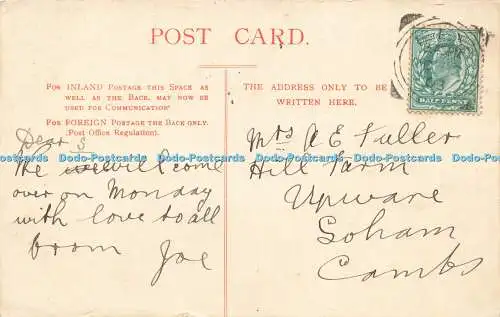 POST CARD.
FOR INLAND POSTAGE THIS SPACE AS
WELL AS THE BACK, MAY NOW BE
USED FOR COMMUNICATION
FOR FOREIGN POSTAGE THE BACK ONLY.
(Post Office Regulation).
THE ADDRESS ONLY TO BE
WRITTEN HERE.
HALF PENNY
Dear S
The will come
over on Monday
with love to all
from Joe
Mrs A E Fuller
Hill Farm
Upware
Soham
Cambs
Dodo-Postcards Dodo-Postcards Dodo-Postcards Dodo-Postcards Dodo-Postcards